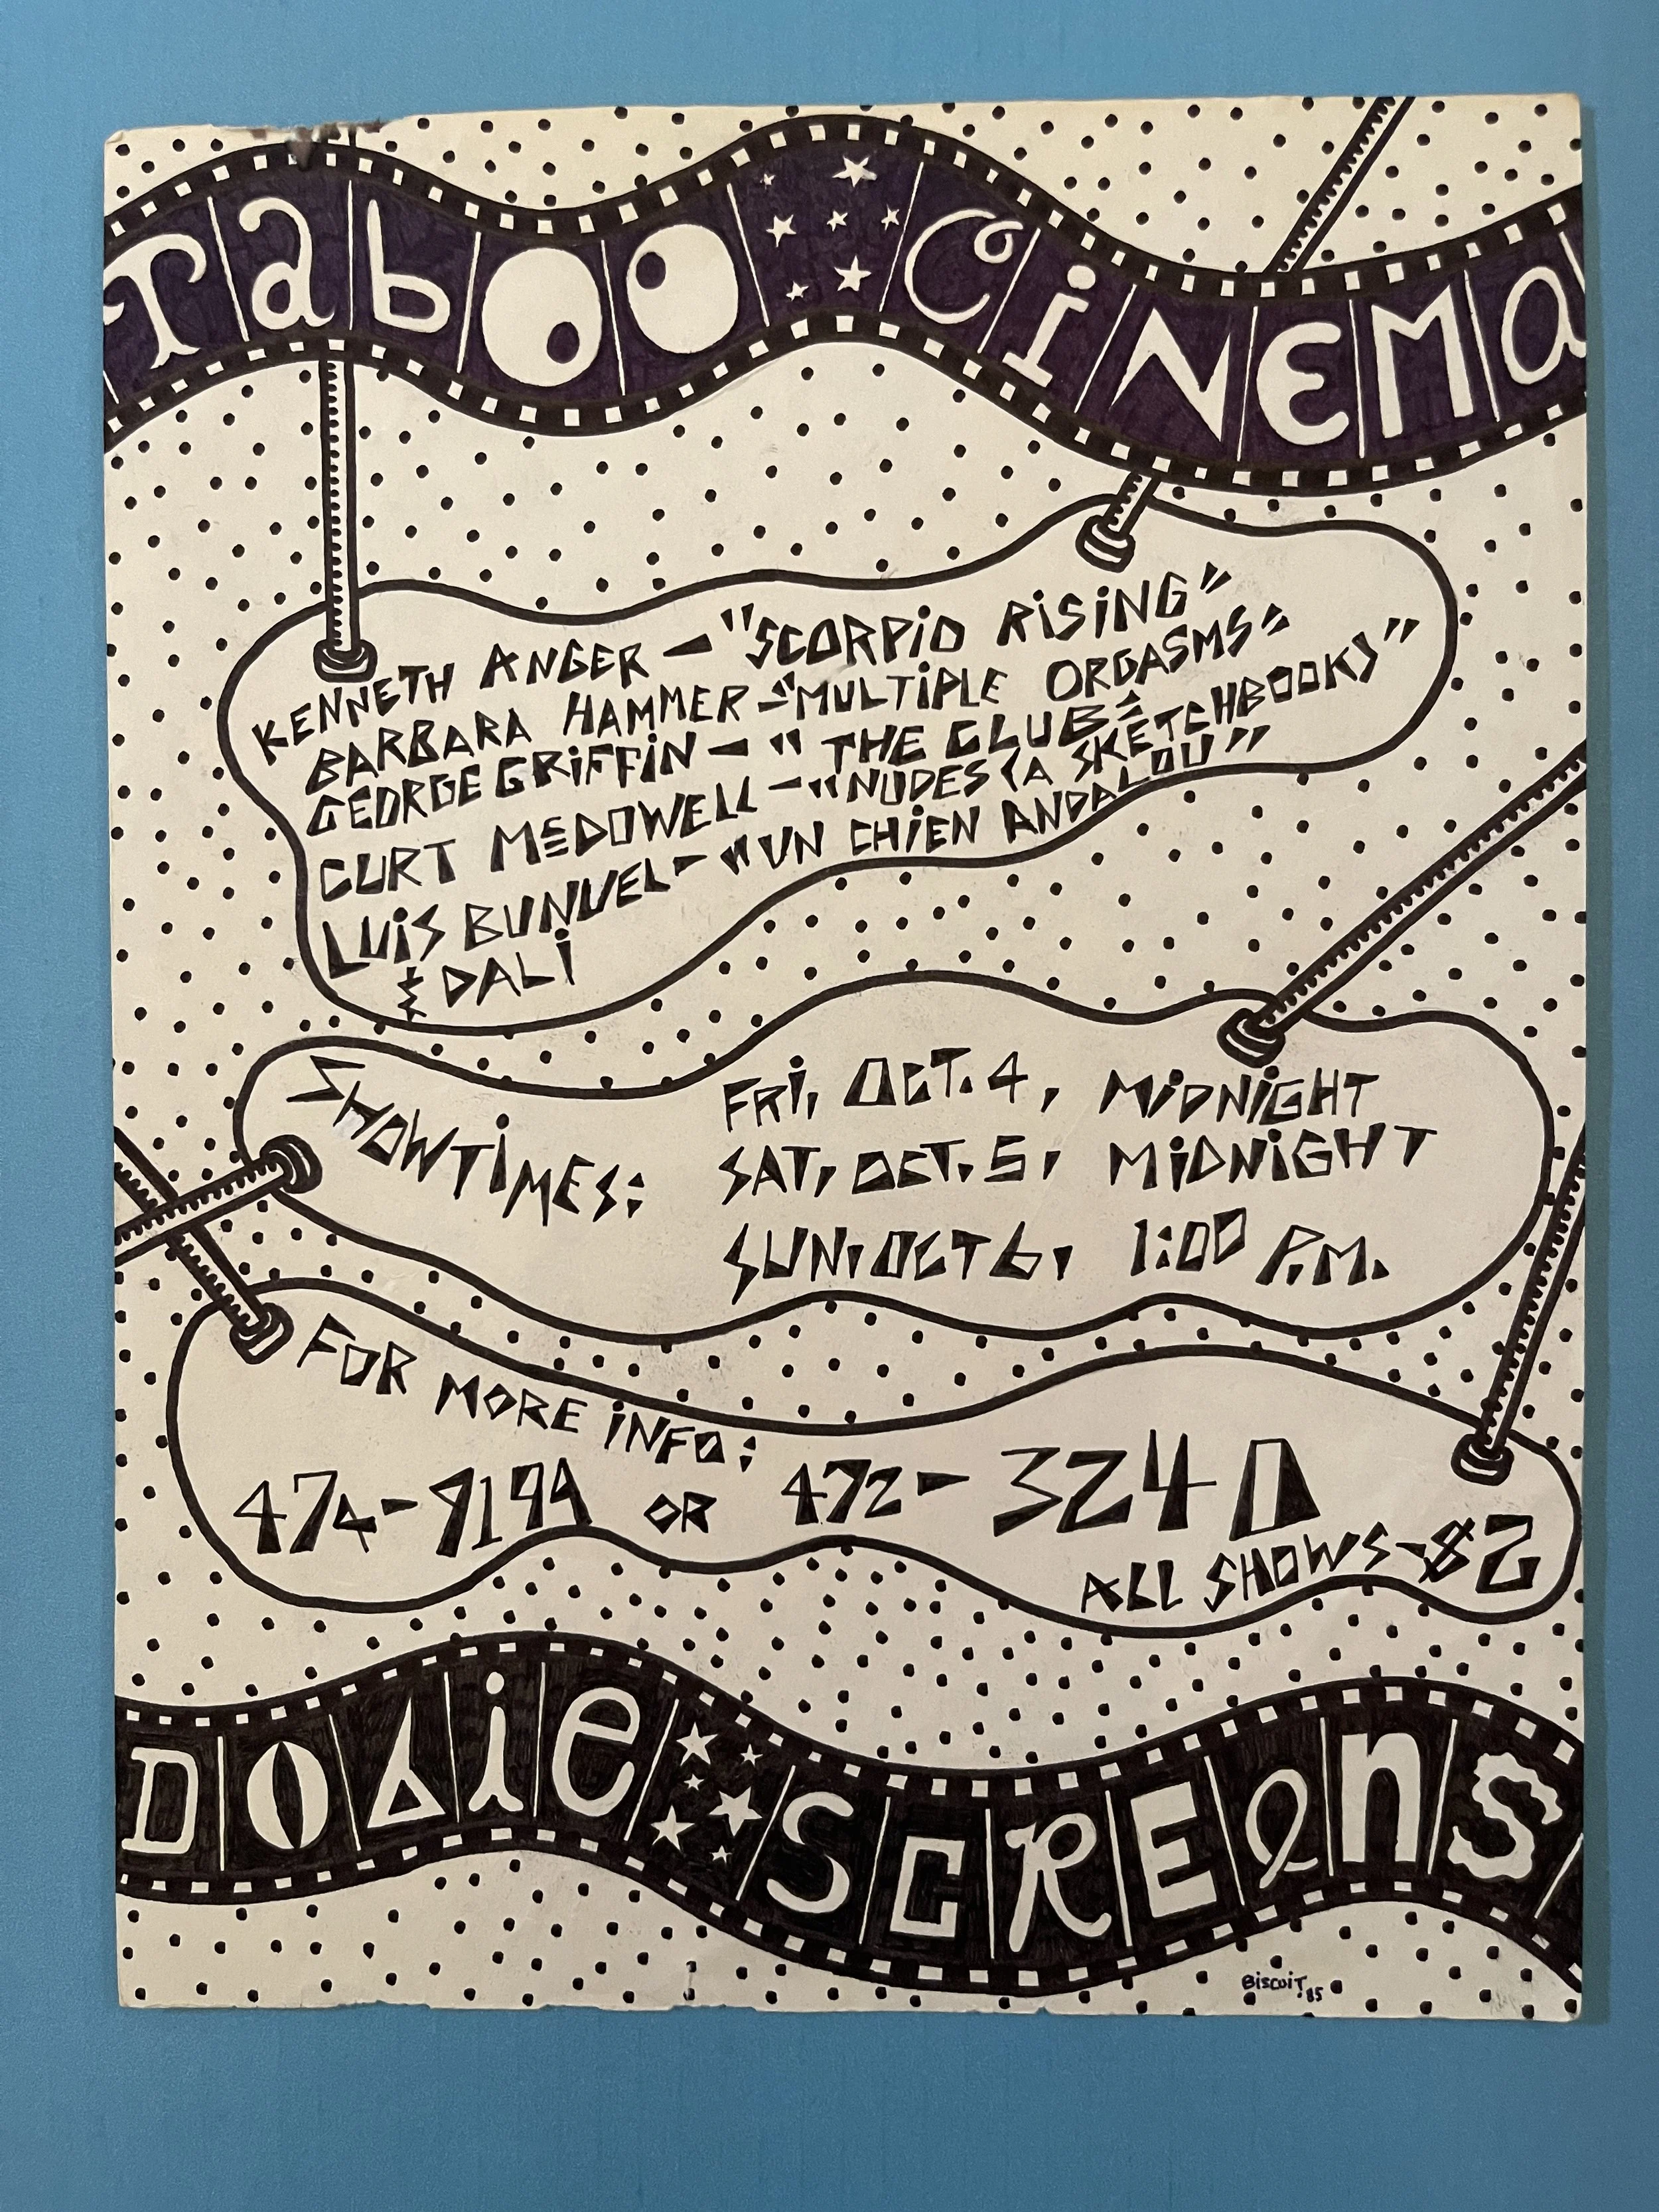 Taboo CiNEMa
KENNETH ANGER - "SCORPiO RiSiNG"
BARBARA HAMMER - "MULTiPLE ORGASMS"
GEORGE GRiFFiN - "THE CLUB"
CURT McDOWELL - "NUDES (A SKETCHBOOK)"
LUiS BUNUEL - "UN CHiEN ANDALOU"
& DALi
SHOWTiMES:
FRi, OCT. 4, MiDNiGHT
SAT, OCT. 5, MiDNiGHT
SUN, OCT 6, 1:00 P.M.
FOR MORE iNFO:
474-9199 OR 472-3240
ALL SHOWS-$2
DObie SCREens
BiSCUiT 85